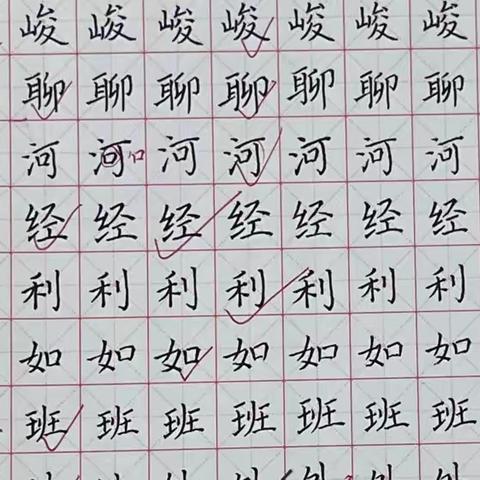 峻峻峻峻峻峻峻
聊聊聊聊聊聊聊
河河口河河河河河
经经经经经经经
利利利利利利利
如如如如如如如
班班班班班班班